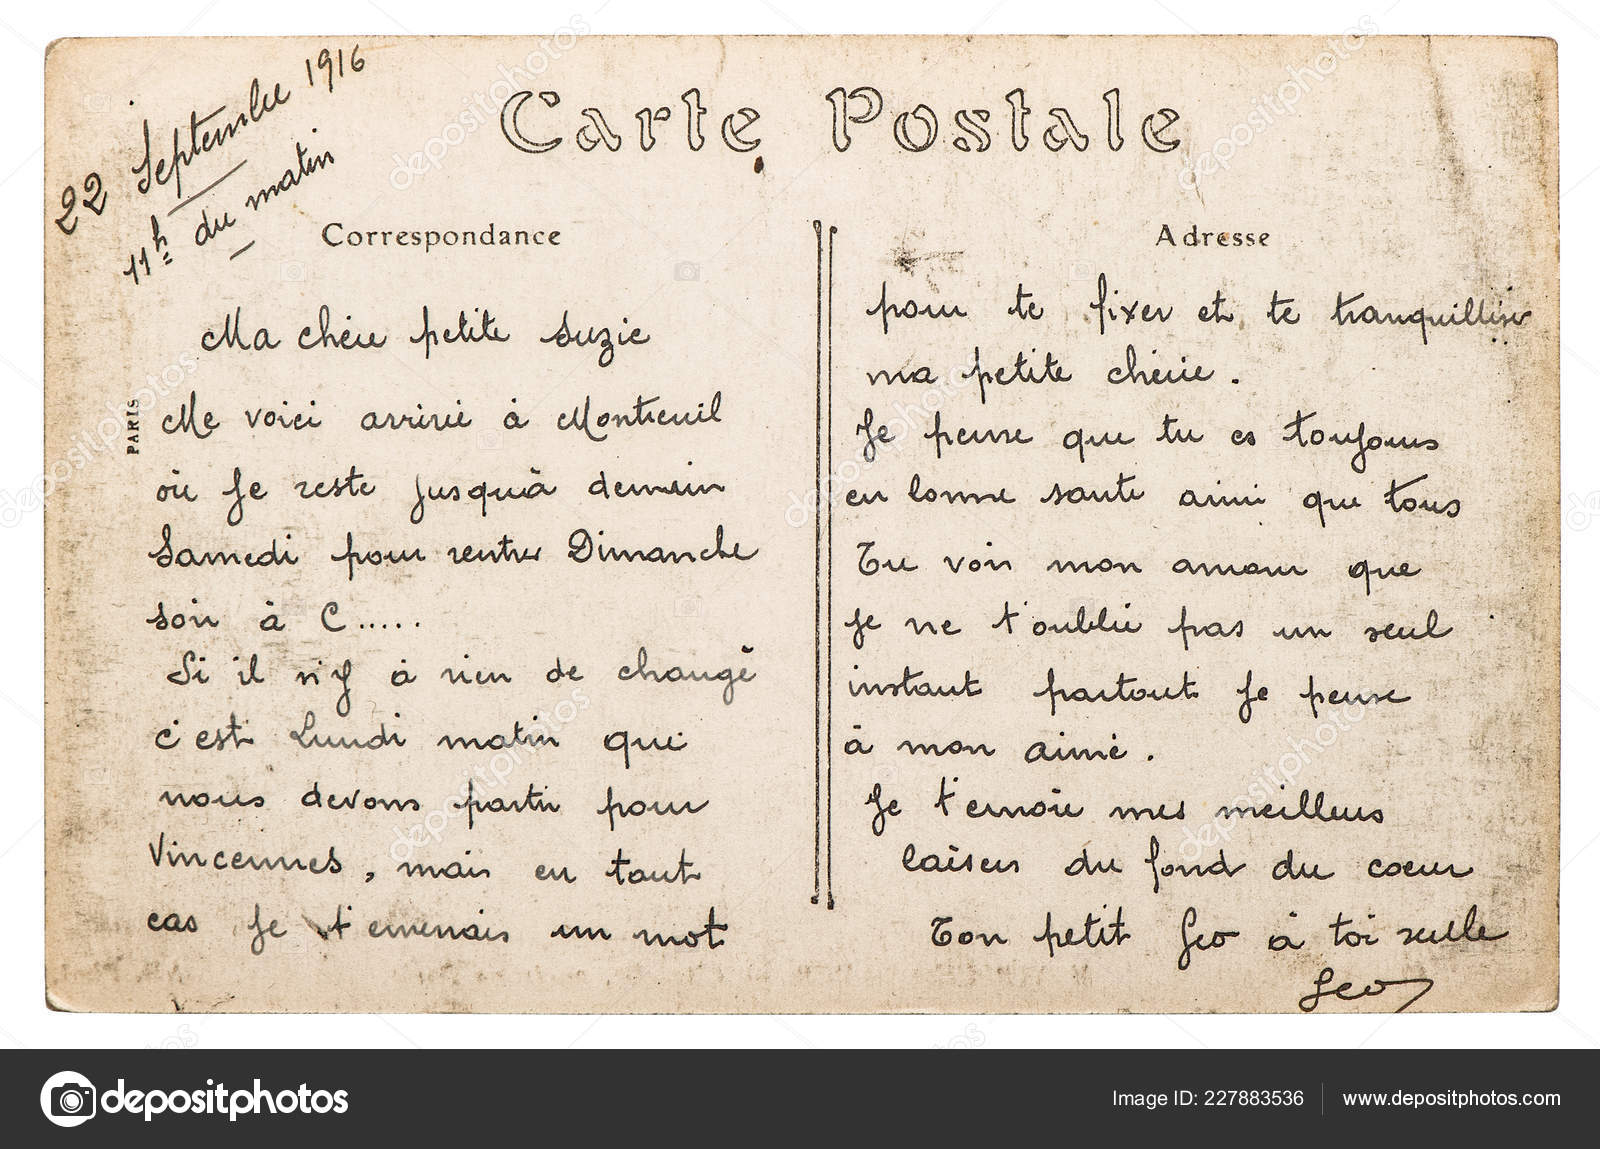 22 Septembre 1916
11h du matin
Carte Postale
Correspondance
Adresse
PARIS
Ma chérie petite Suzie
Me voici arrivé à Montreuil
où je reste jusqu'à demain
Samedi pour rentrer Dimanche
soir à C.....
Si il n'y à rien de changé
c'est Lundi matin que
nous devons partir pour
Vincennes, mais en tout
cas je t'enverrais un mot
pour te fixer et te tranquilliser
ma petite chérie.
Je pense que tu es toujours
en bonne santé ainsi que tous
Tu vois mon amour que
je ne t'oublie pas un seul
instant partout je pense
à mon aimé.
Je t'envoie mes meilleurs
baisers du fond du coeur
Ton petit Geo à toi seule
Geo
depositphotos
Image ID: 227883536
www.depositphotos.com